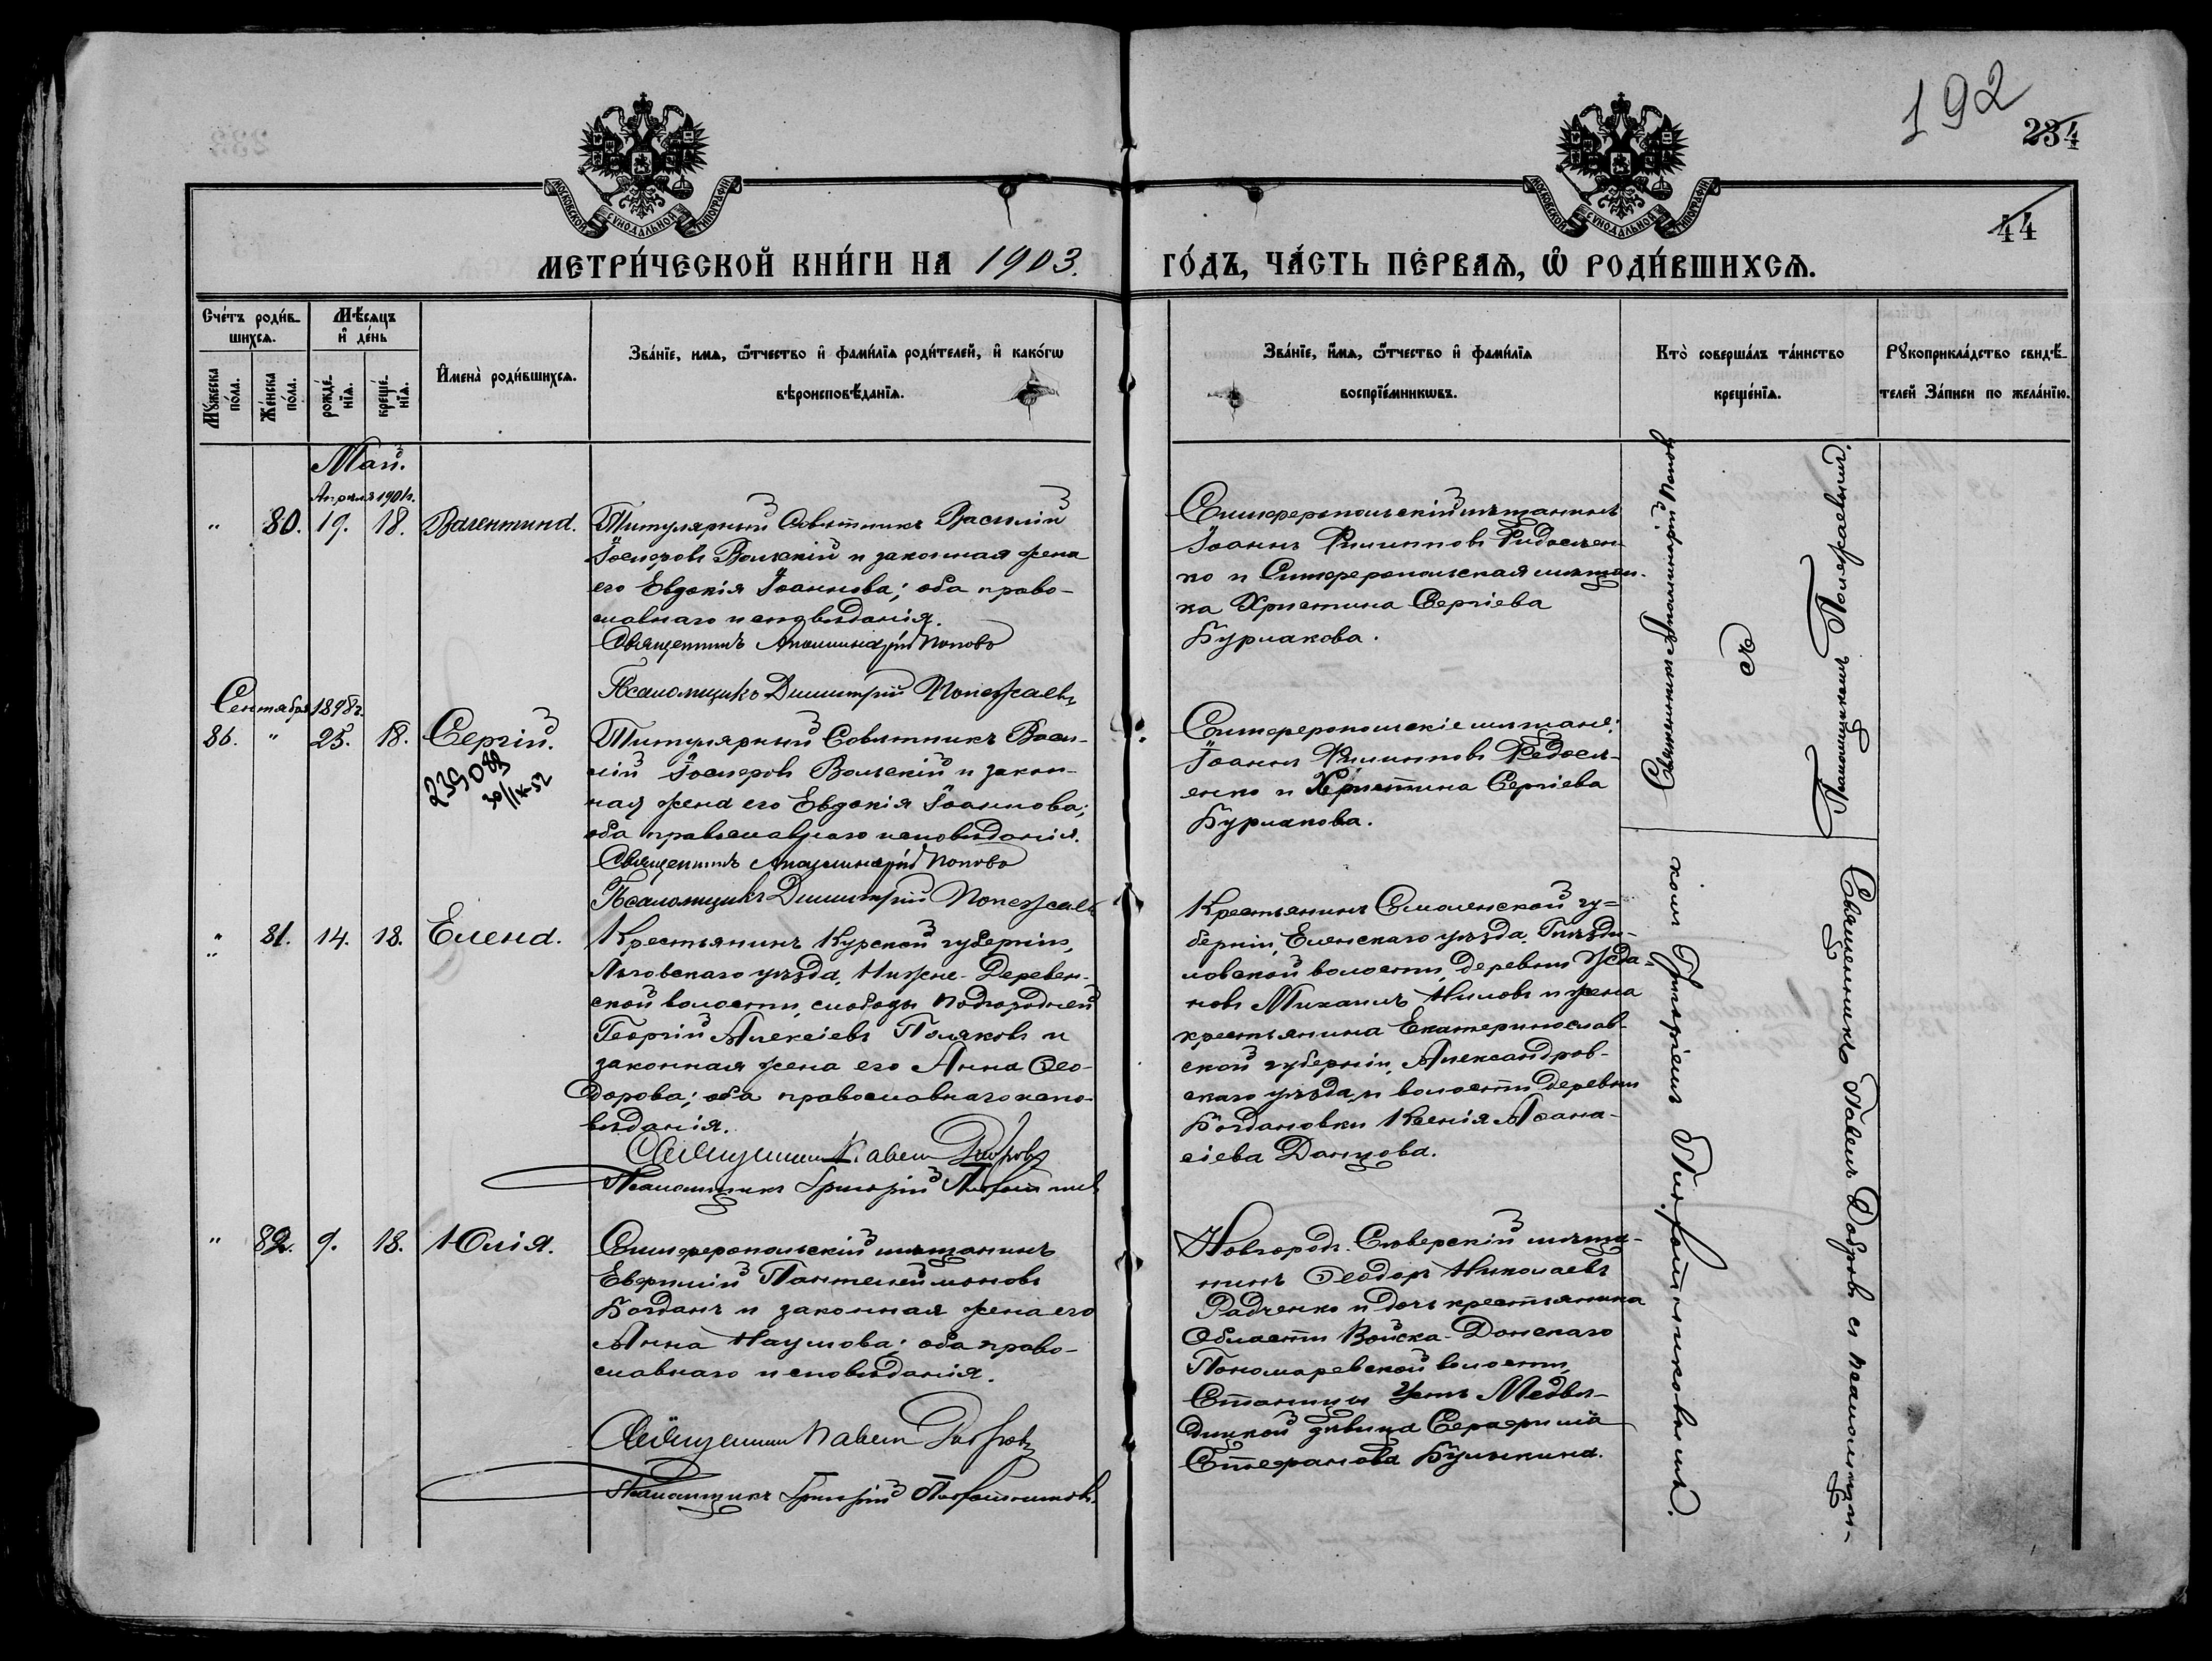 192
234
44
МОСКОВСКОЙ СѴНОДАЛЬНОЙ ТИПОГРАФІИ
МОСКОВСКОЙ СѴНОДАЛЬНОЙ ТИПОГРАФІИ
МЕТРИ́ЧЕСКОЙ КНИ́ГИ НА 1903. ГО́ДЪ, ЧА́СТЬ ПЕ́РВАѦ, Ѡ҆ РОДИ́ВШИХСѦ.
Сче́тъ роди́в-
шихсѧ.
Мꙋ́жеска по́ла.
Же́нска по́ла.
Мѣ́сѧцъ
и҆ де́нь
рожде́-
нїѧ.
креще́-
нїѧ.
И҆мена̀ роди́вшихсѧ.
Зва́нїе, и҆мѧ, ѻ҆́тчество и҆ фами́лїѧ роди́телей, и҆ како́гѡ
вѣроисповѣ́данїѧ.
Зва́нїе, и҆́мѧ, ѻ҆́тчество и҆ фами́лїѧ
воспрїе́мникѡвъ.
Кто̀ соверша́лъ та́инство
креще́нїѧ.
Рꙋкоприкла́дство свидѣ́-
телей За́писи по жела́нїю.
Май.
Апреля 1901г.
" 80. 19. 18. Валентина.
Титулярный Совѣтникъ Василій
Іосифовъ Вольскій и законная жена
его Евдокія Іоаннова; оба право-
славнаго исповѣданія.
Священникъ Аполлинарій Поповъ
Псаломщикъ Димитрій Полежаевъ
Симферопольскій мѣщанинъ
Іоаннъ Филипповъ Федосѣен-
ко и Симферопольская мѣщан-
ка Христина Сергіева
Бурлакова.
Сентября 1898г.
86. " 25. 18. Сергій.
30/IX-52
Титулярный Совѣтникъ Васи-
лій Іосифовъ Вольскій и закон-
ная жена его Евдокія Іоаннова;
оба православнаго исповѣданія.
Священникъ Аполлинарій Поповъ
Псаломщикъ Димитрій Полежаевъ
Симферопольскіе мѣщане:
Іоаннъ Филипповъ Федосѣ-
енко и Христина Сергіева
Бурлакова.
Священникъ Аполлинарій Поповъ
съ
Псаломщикомъ Полежаевымъ.
" 81. 14. 18. Елена.
Крестьянинъ Курской губерніи,
Льговскаго уѣзда, Нижне-Деревен-
ской волости, слободы Подгородней
Георгій Алексіевъ Поляковъ и
законная жена его Анна Ѳео-
дорова; оба православнаго испо-
вѣданія.
Священникъ Павелъ Добровъ
Псаломщикъ Григорій
Крестьянинъ Смоленской гу-
берніи, Еленскаго уѣзда,
ловской волости, деревни Жда-
новъ Михаилъ Ниловъ и жена
крестьянина Екатеринослав-
ской губерніи, Александров-
скаго уѣзда, и волости деревни
Богдановки Ксенія Аѳана-
сіева Донцова.
" 82. 9. 18. Юлія.
Симферопольскій мѣщанинъ
Евфимій Пантелеймоновъ
Богданъ и законная жена его
Анна Наумова; оба право-
славнаго исповѣданія.
Священникъ Павелъ Добровъ
Псаломщикъ Григорій
Новгородъ-Сѣверскій мѣща-
нинъ Ѳеодоръ Николаевъ
Радченко и дочь крестьянина
Области Войска-Донскаго
Пономаревской волости,
Станицы Усть Медвѣ-
дицкой дѣвица Серафима
Стефанова Булыкина.
Священникъ Павелъ Добровъ съ псаломщи-
комъ Григоріемъ